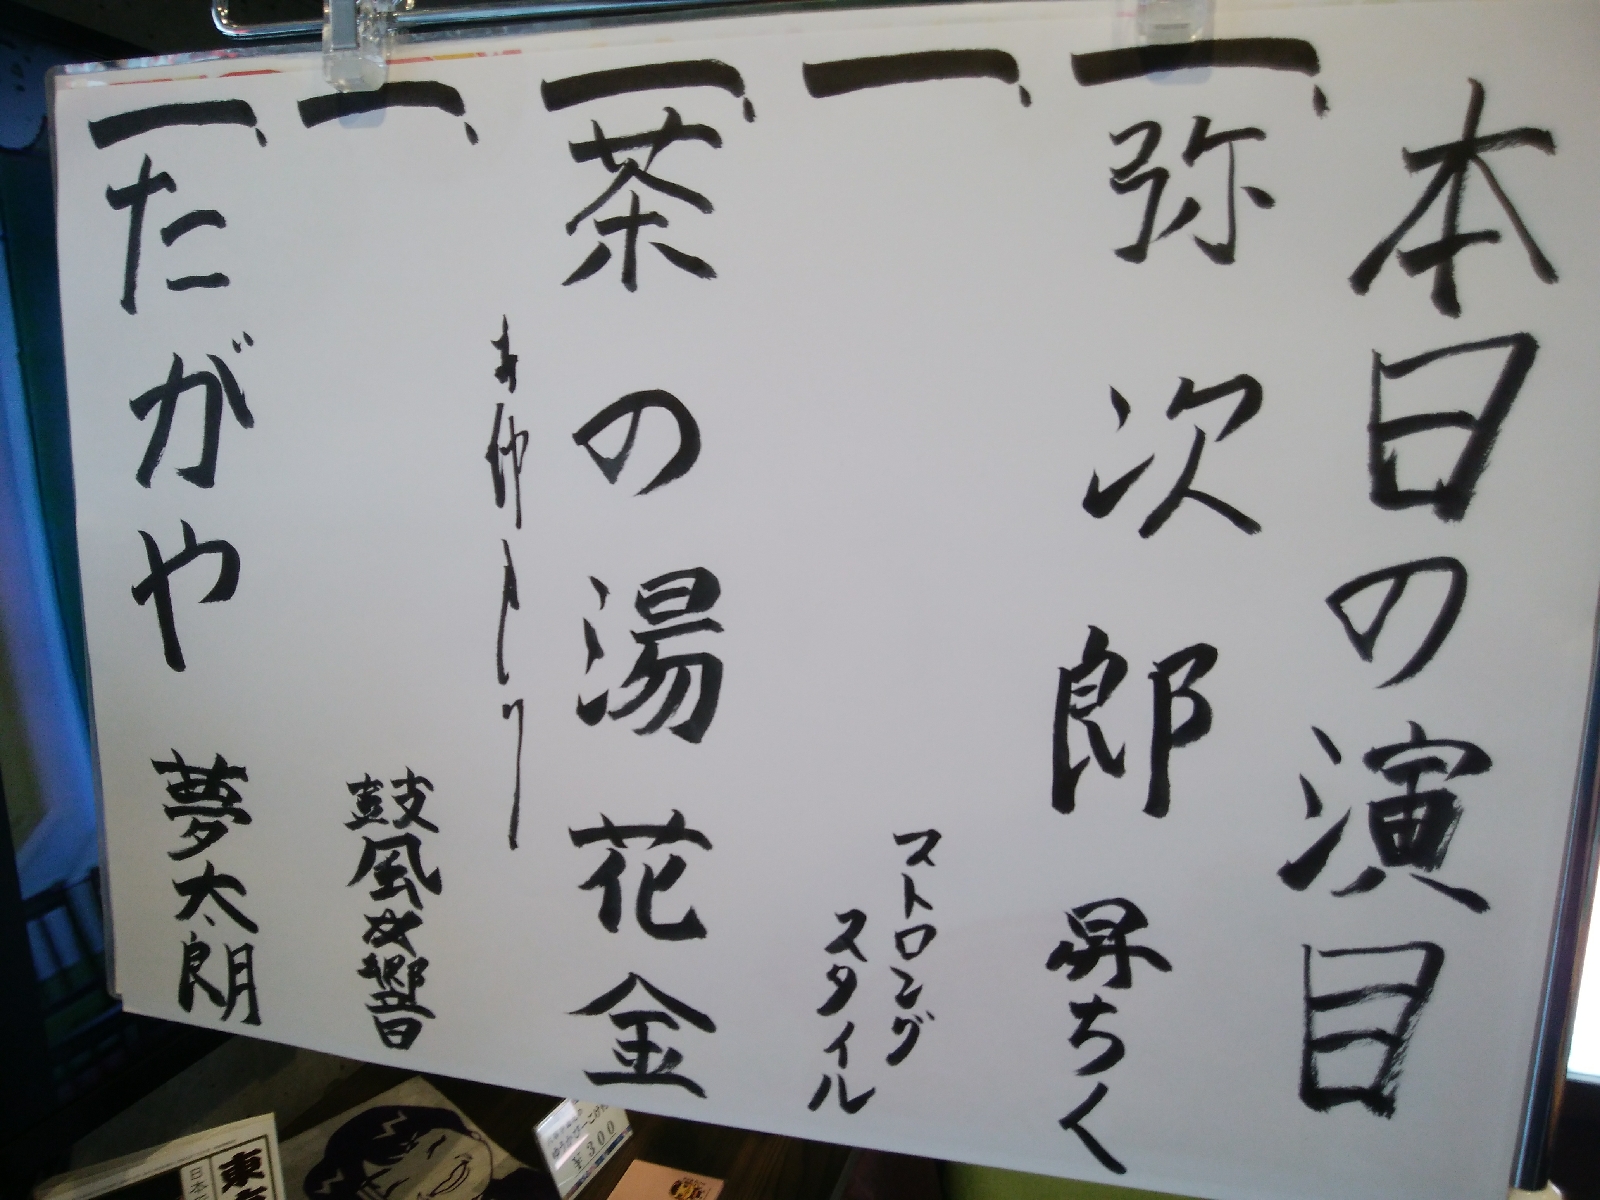 本日の演目
一、弥次郎 昇ちく
一、ストロング
スタイル
一、茶の湯 花金
お仲入り
一、鼓風又響
一、たがや 夢太朗
¥300